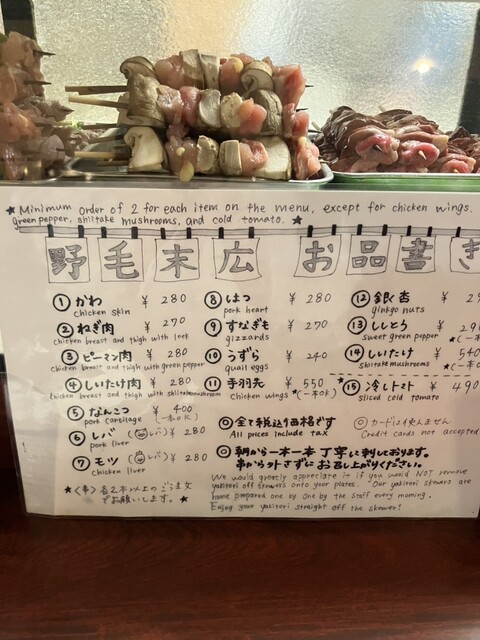 ★Minimum order of 2 for each item on the menu, except for chicken wings,
green pepper, shiitake mushrooms, and cold tomato. ★
野毛末広 お品書き
① かわ ¥ 280
chicken skin
② ねぎ肉 ¥ 270
chicken breast and thigh with leek
③ ピーマン肉 ¥ 280
chicken breast and thigh with green pepper
④ しいたけ肉 ¥ 280
chicken breast and thigh with shiitake mushroom
⑤ なんこつ ¥ 400
pork cartilage (一本OK)
⑥ レバ ¥ 280
pork liver
⑦ モツ ¥ 280
chicken liver
★〈串〉各2本以上のご注文
でお願いします。 ★
⑧ はつ ¥ 280
pork heart
⑨ すなぎも ¥ 270
gizzards
⑩ うずら ¥ 240
quail eggs
⑪ 手羽先 ¥ 550
chicken wings ★(一本OK)
⑫ 銀杏 ¥
ginkgo nuts
⑬ ししとう ¥
sweet green pepper
⑭ しいたけ ¥ 540
shiitake mushrooms
★⑮ 冷しトマト ¥ 490
sliced cold tomato
◎ 全て税込価格です
All prices include tax
◎ カードは使えません
Credit cards not accepted
◎ 朝から一本一本丁寧に刺しております。
串から外さずにお召し上がりください。
We would greatly appreciate it if you would NOT remove
yakitori off skewers onto your plates. Our yakitori skewers are
home prepared one by one by the staff every morning.
Enjoy your yakitori straight off the skewer!